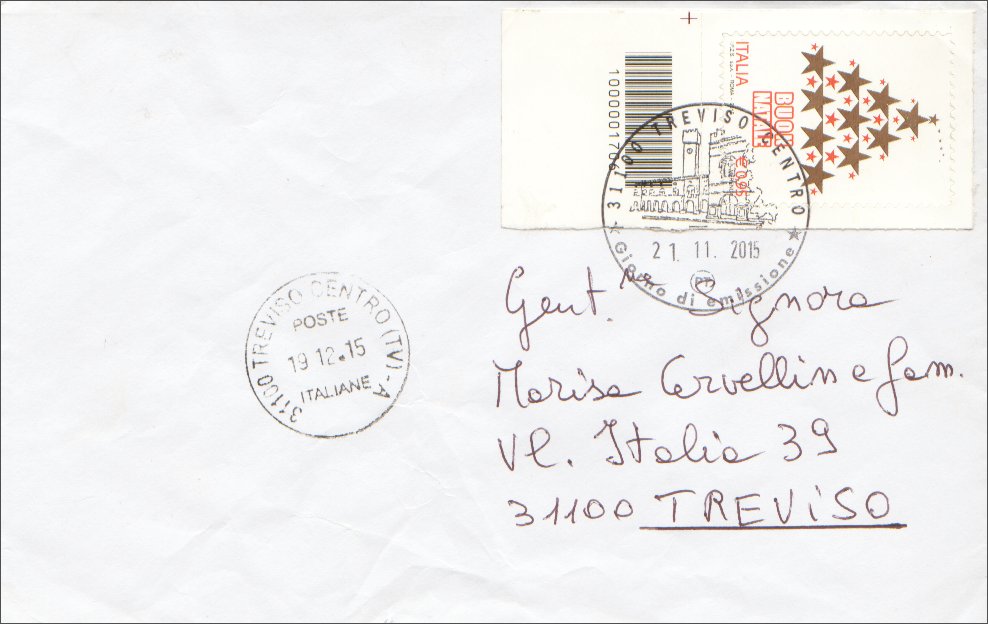 ITALIA
BUON
NATALE
€ 0,95
31100 TREVISO CENTRO
21. 11. 2015
Giorno di emissione
PT
31100 TREVISO CENTRO (TV) - A
POSTE
19.12.15
ITALIANE
Gent.ma Signora
Marisa Corvellin e fam.
Vl. Italia 39
31100 TREVISO